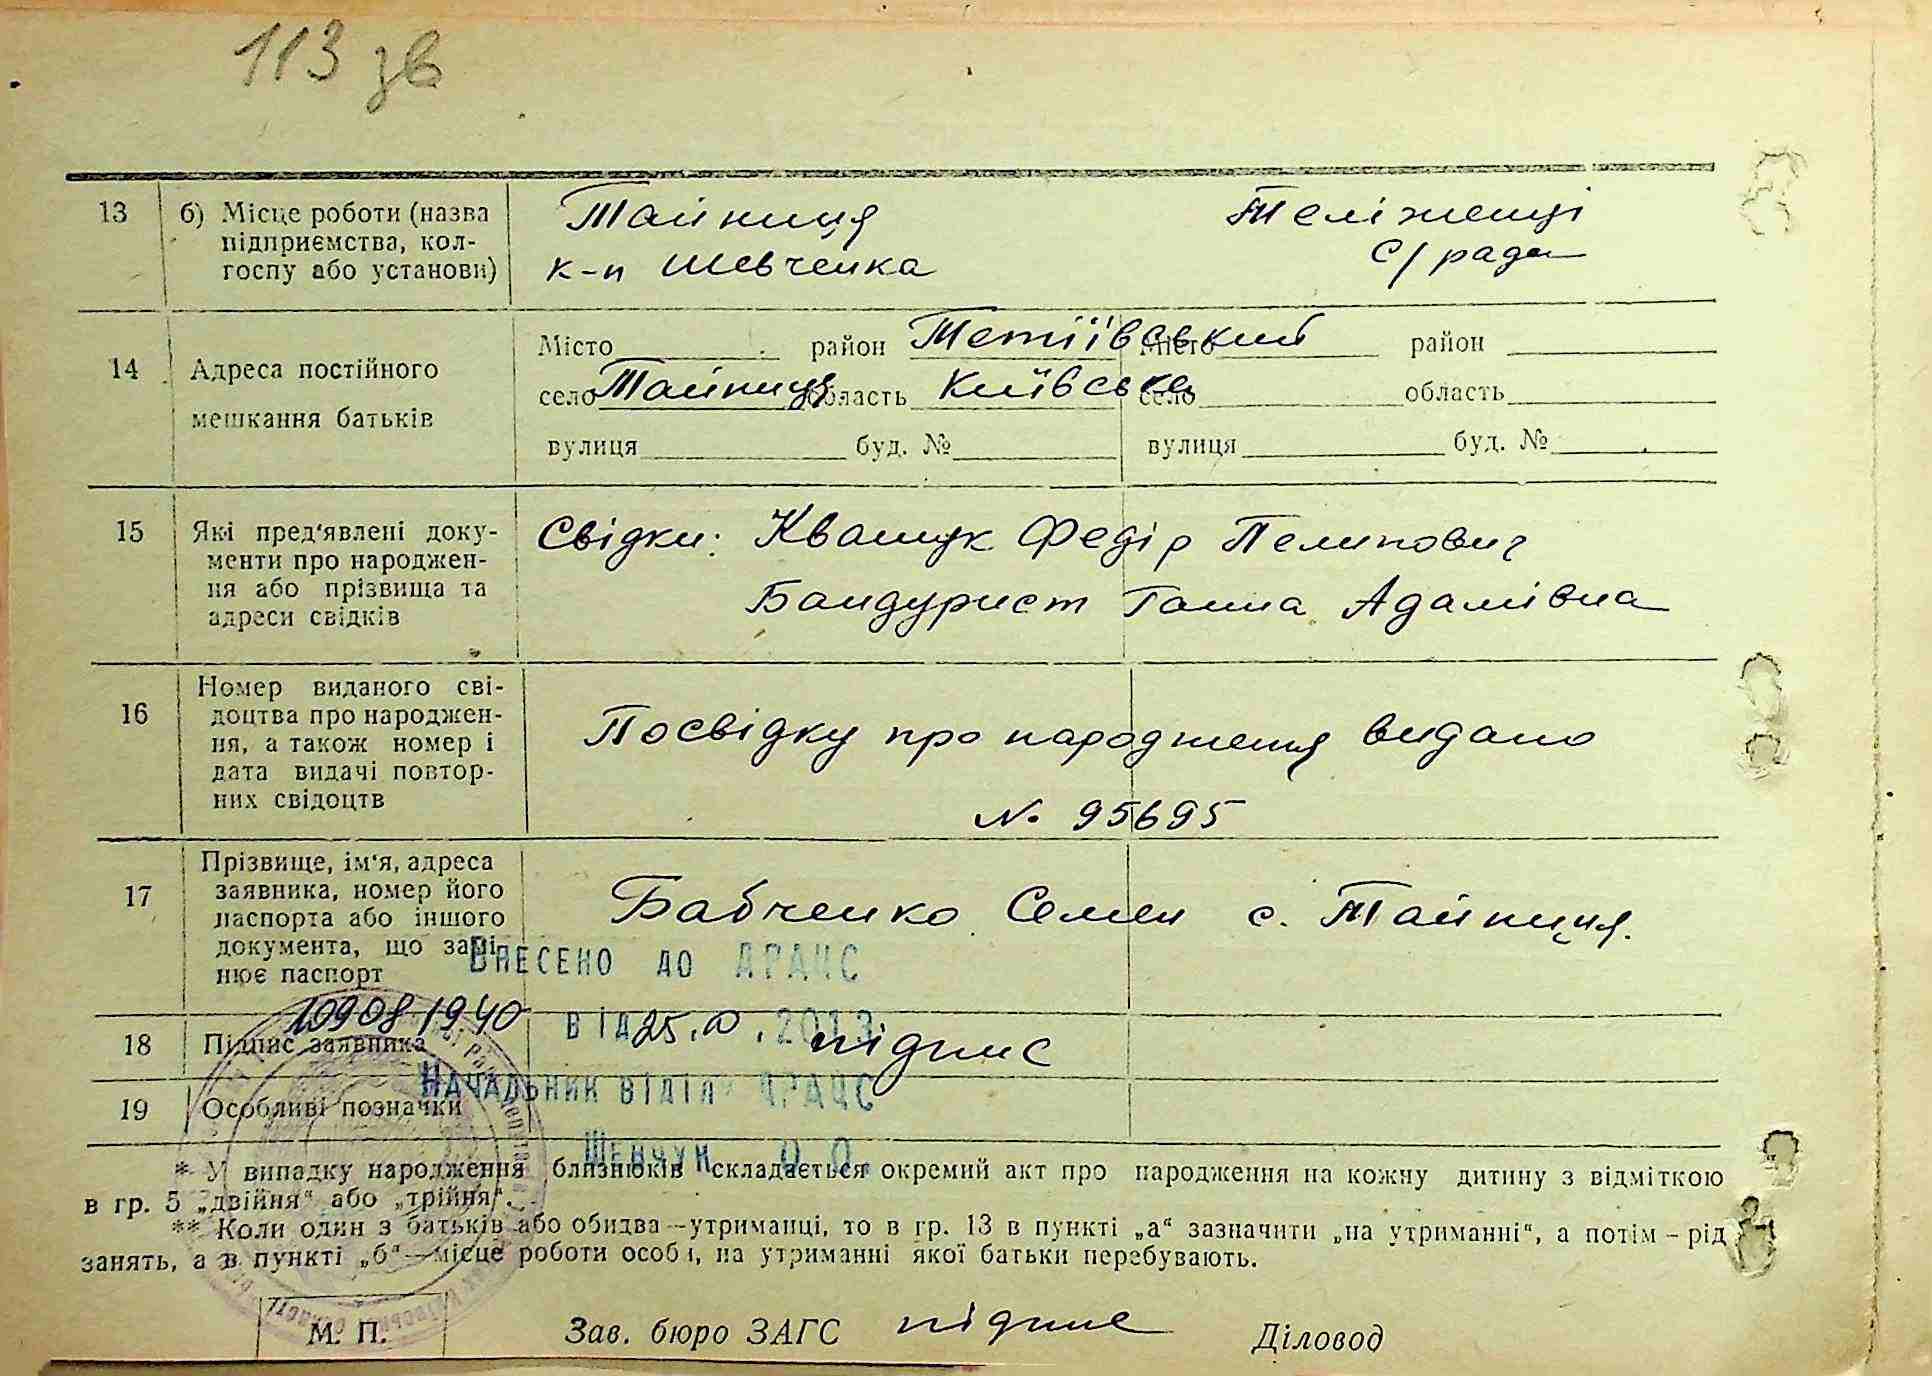 113 зв
13 б) Місце роботи (назва підприємства, колгоспу або установи)
Тайниця
к-п Шевченка
Теліженці
с/рада
14 Адреса постійного мешкання батьків
Місто район Тетіївський Місто район
село Тайниця область Київська село область
вулиця буд. № вулиця буд. №
15 Які пред'явлені доку-
менти про народжен-
ня або прізвища та
адреси свідків
Свідки: Квашук Федір Пелипович
Бандурист Ганна Адамівна
16 Номер виданого сві-
доцтва про народжен-
ня, а також номер і
дата видачі повтор-
них свідоцтв
Посвідку про народження видано
№ 95695
17 Прізвище, ім'я, адреса
заявника, номер його
паспорта або іншого
документа, що замі-
нює паспорт
Бабченко Семен с. Тайниця.
Внесено до ДРАЦС
109081940
від 25. 2013
18 Підпис заявника
підпис
Начальник відділу ДРАЦС
19 Особливі позначки
Шевчук О.О.
* У випадку народження близнюків складається окремий акт про народження на кожну дитину з відміткою
в гр. 5 „двійня" або „трійня".
** Коли один з батьків або обидва—утриманці, то в гр. 13 в пункті „а" зазначити „на утриманні", а потім – рід
занять, а в пункті „б"—місце роботи особи, на утриманні якої батьки перебувають.
М. П. Зав. бюро ЗАГС підпис Діловод